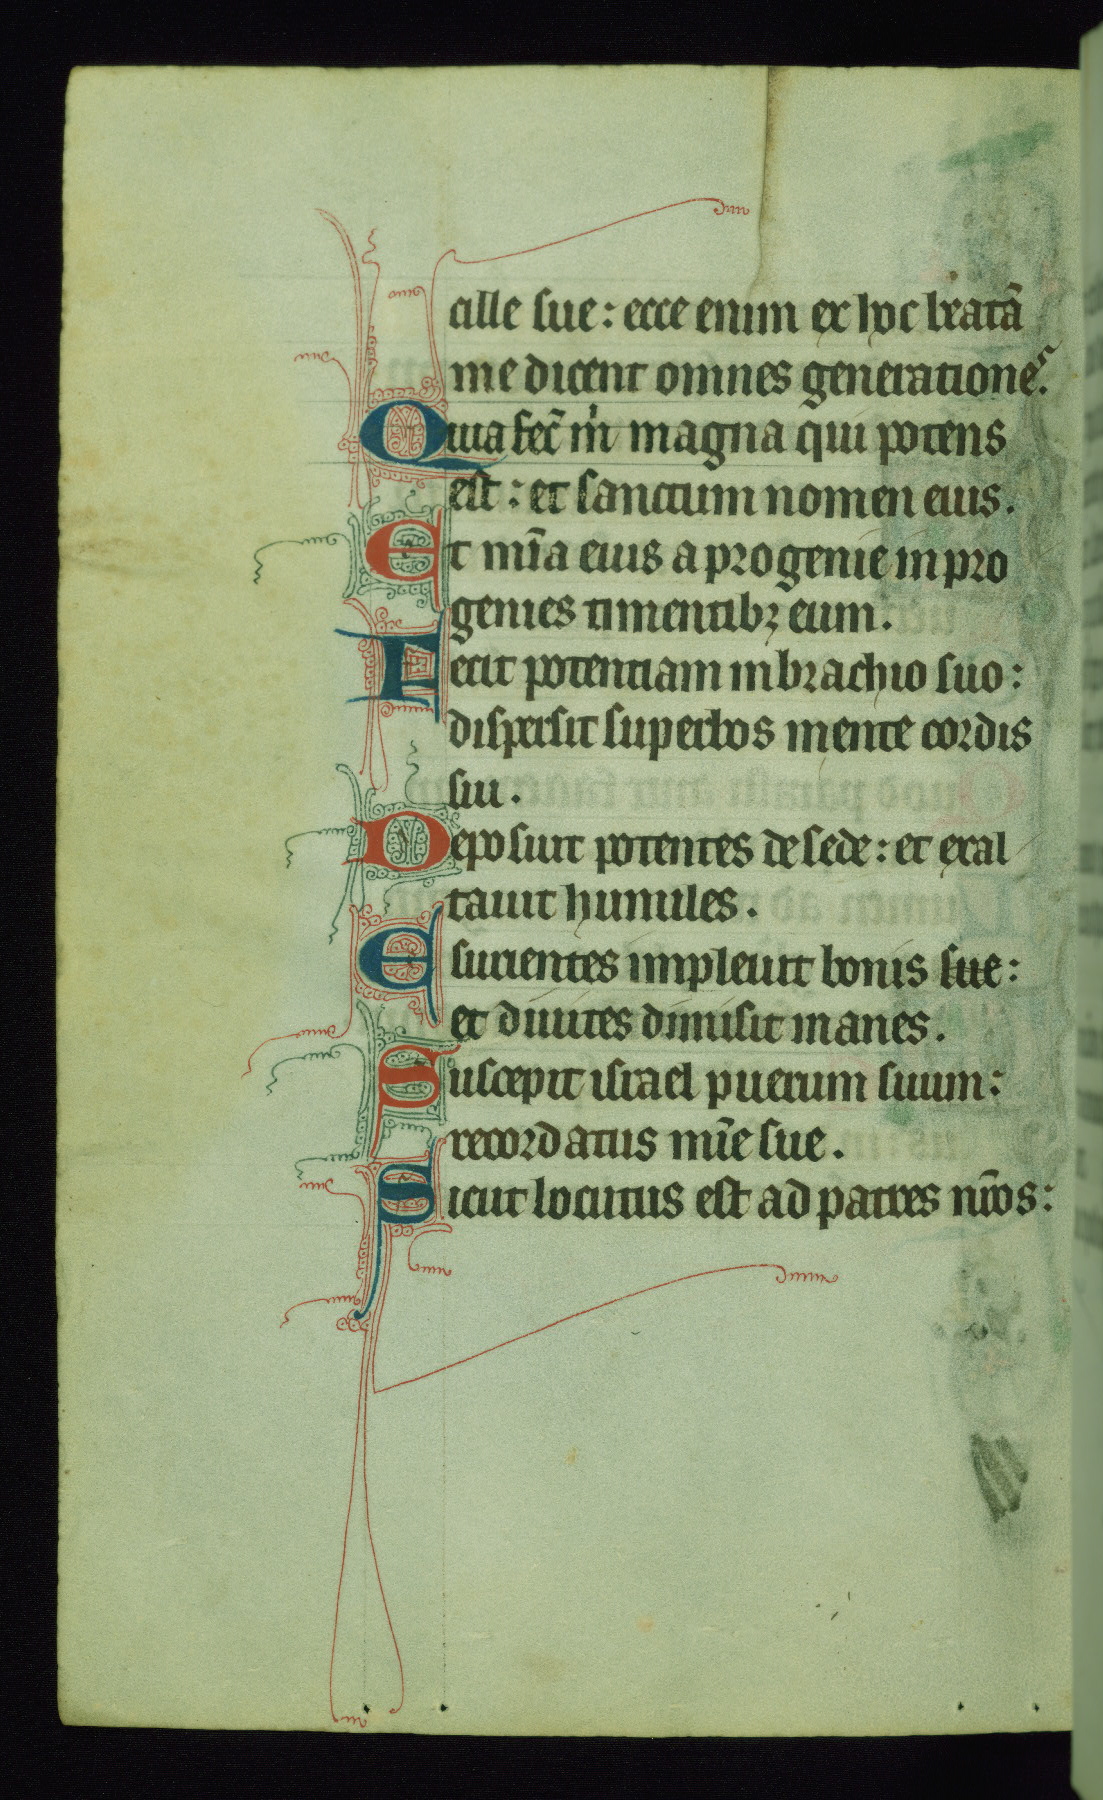 cille sue: ecce enim ex hoc beatā
me dicent omnes generationes.
Quia fec̄ m̍ magna qui potens
est: et sanctum nomen eius.
Et mīa eius a progenie in pro
genies timentibꝫ eum.
Fecit potentiam in brachio suo:
dispersit superbos mente cordis
sui.
Deposuit potentes de sede: et exal
tauit humiles.
Esurientes impleuit bonis sue:
et diuites dimisit inanes.
Suscepit israel puerum suum:
recordatus mīe sue.
Sicut locutus est ad patres nr̄os: